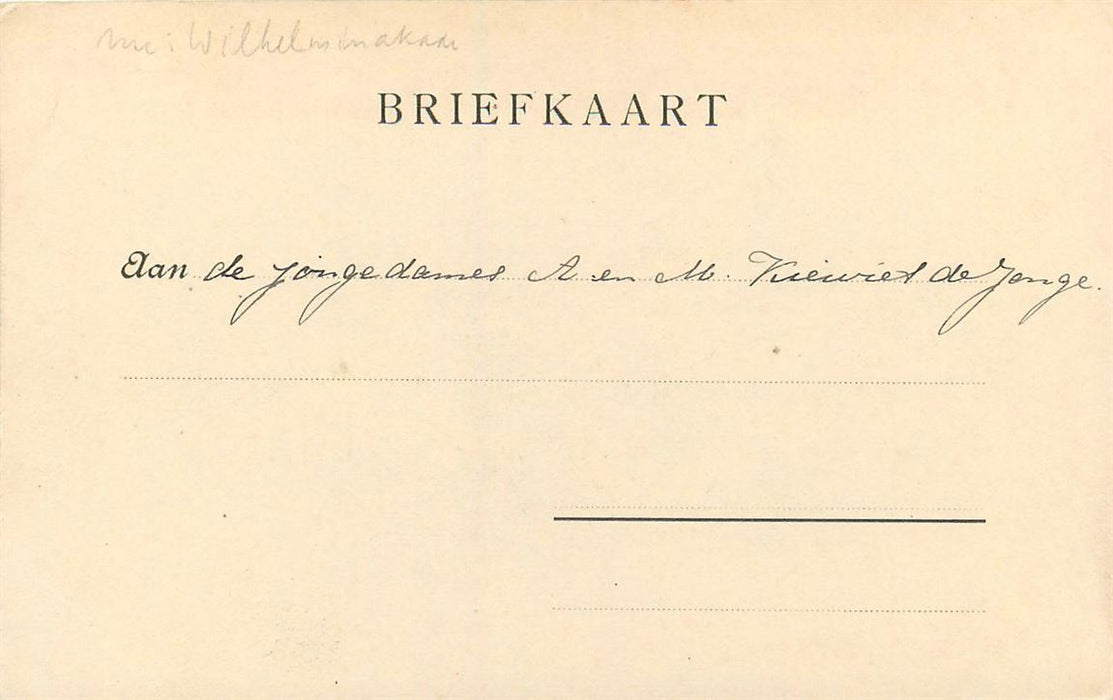 Wilhelminakade
BRIEFKAART
Aan de jongedames A en M. Kiewiet de Jonge.